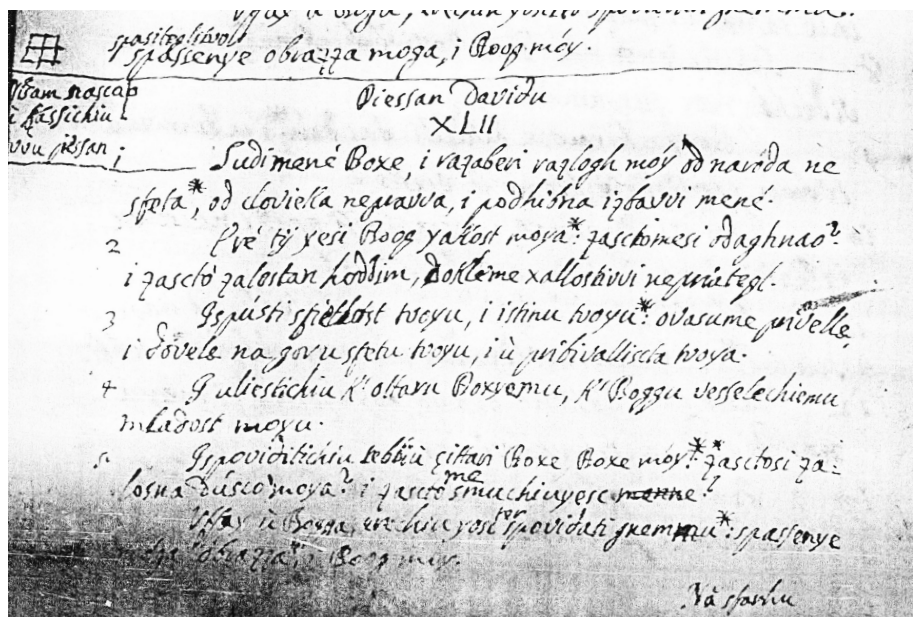 spasiteglstvo
spassenye obrazza moga, i Boog moy.
Piessan Davidu
XLII
1 Sudi mené Boxe, i razaberi razlogh moy od naroda ne
sfeta*, od clovieka nepravva, i podhibna izbavvi mene.
2 Eré ty yesi Boog yakost moya*: zasctomesi odaghnao?
i zascto zalostan hoddim, dokleme xallostivvi nepriategl.
3 Izpústi sfietlost tvoyu, i istinu tvoyu*: ovasume privelle,
i dovele na goru sfetu tvoyu, i ù pribivalliscta tvoya.
4 I uliestichiu k' oltaru Boxyemu, k' Boggu vesselechiemu
mladost moyu.
5. Ispoviditichiu tebbi ù cittari Boxe Boxe móy*: zasctosi za-
losna dusco moya? i zascto me smuchiuyesc menne?
Uffay ù Bogga, erechiu yosc ispovidati gnemmu*: spassenye
obrazza, i Boog moy.